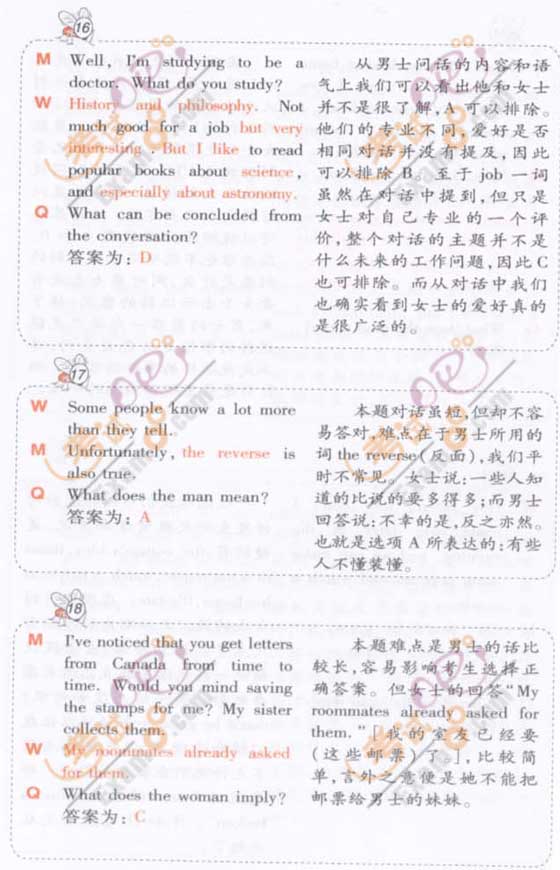 16
M Well, I'm studying to be a
doctor. What do you study?
W History and philosophy. Not
much good for a job but very
interesting. But I like to read
popular books about science,
and especially about astronomy.
Q What can be concluded from
the conversation?
答案为: D
从男士问话的内容和语
气上我们可以看出他和女士
并不是很了解,A 可以排除。
他们的专业不同,爱好是否
相同对话并没有提及,因此
可以排除 B。至于 job 一词
虽然在对话中提到,但只是
女士对自己专业的一个评
价,整个对话的主题并不是
什么未来的工作问题,因此 C
也可排除。而从对话中我们
也确实看到女士的爱好真的
是很广泛的。
17
W Some people know a lot more
than they tell.
M Unfortunately, the reverse is
also true.
Q What does the man mean?
答案为: A
本题对话虽短,但却不容
易答对,难点在于男士所用的
词 the reverse(反面),我们平
时不常见。女士说:一些人知
道的比说的要多得多;而男士
回答说:不幸的是,反之亦然。
也就是选项 A 所表达的:有些
人不懂装懂。
18
M I've noticed that you get letters
from Canada from time to
time. Would you mind saving
the stamps for me? My sister
collects them.
W My roommates already asked
for them.
Q What does the woman imply?
答案为: C
本题难点是男士的话比
较长,容易影响考生选择正
确答案。但女士的回答“My
roommates already asked for
them.”[我的室友已经要
(这些邮票)了],比较简
单,言外之意便是她不能把
邮票给男士的妹妹。